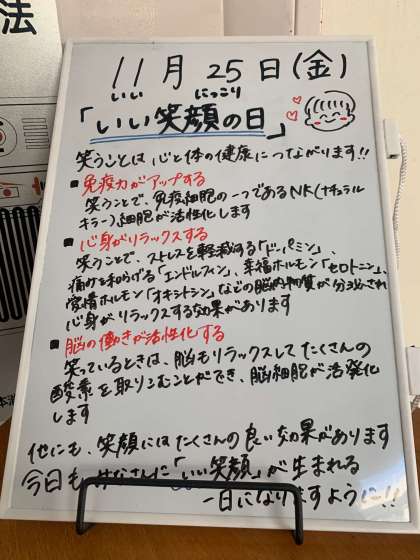 法
11月25日(金)
いい にっこり
「いい笑顔の日」
笑うことは心と体の健康につながります!!
■免疫力がアップする
笑うことで、免疫細胞の一つであるNK(ナチュラル
キラー)細胞が活性化します
■心身がリラックスする
笑うことで、ストレスを軽減する「ドッパミン」、
痛みを和らげる「エンドルフィン」、幸福ホルモン「セロトニン」、
愛情ホルモン「オキシトシン」などの脳内物質が分泌され
心身がリラックスする効果があります
■脳の働きが活性化する
笑っているときは、脳もリラックスしてたくさんの
酸素を取りこむことができ、脳細胞が活発化
します
他にも、笑顔にはたくさんの良い効果があります
今日もみなさんに「いい笑顔」が生まれる
一日になりますように!!